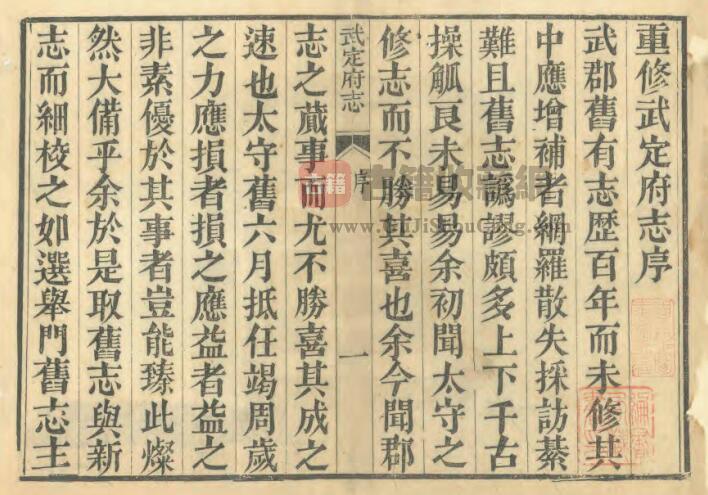 重修武定府志序
武郡舊有志歷百年而未修其
中應增補者網羅散失採訪綦
難且舊志譌謬頗多上下千古
操觚良未易易余初聞太守之
修志而不勝其喜也余今聞郡
武定府志
序
一
志之蕆事而尤不勝喜其成之
速也太守舊六月抵任竭周歲
之力應損者損之應益者益之
非素優於其事者豈能臻此燦
然大備乎余於是取舊志與新
志而細校之如選舉門舊志主
古籍
古籍收藏網
www.GuJiShouCang.com